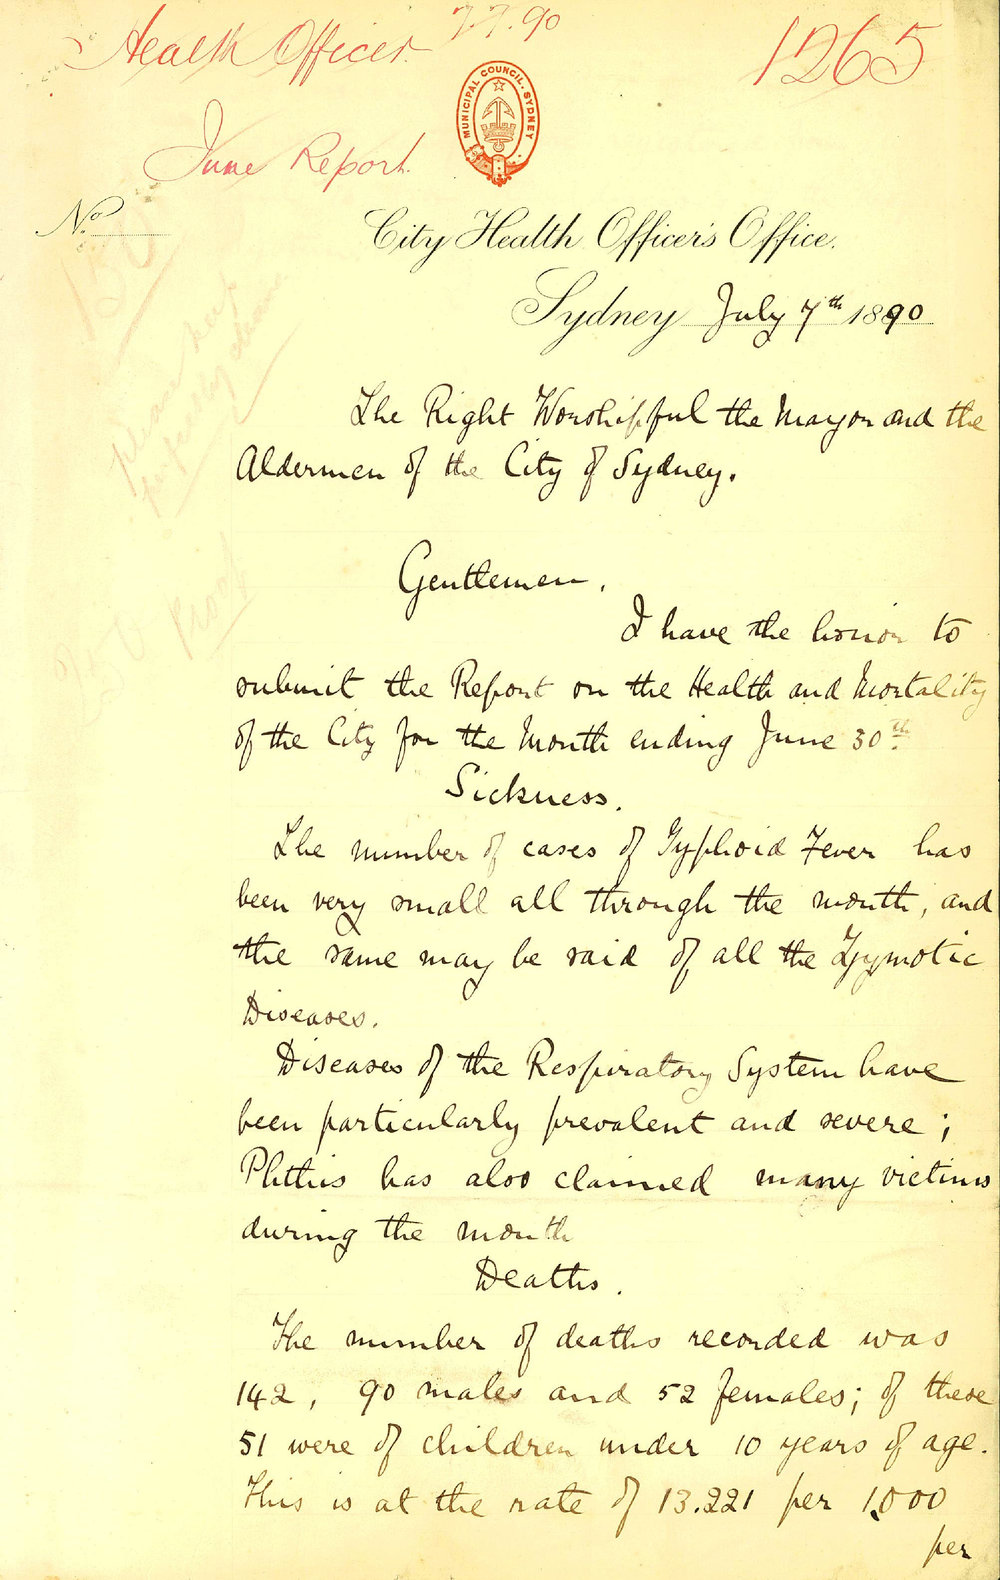 Health Officer 7.7.90
1265
MUNICIPAL COUNCIL. SYDNEY
June Report.
No.
City Health Officer's Office.
Sydney July 7th 1890
The Right Worshipful the Mayor and the
Aldermen of the City of Sydney.
Gentlemen,
I have the honor to
submit the Report on the Health and Mortality
of the City for the Month ending June 30th.
Sickness.
The number of cases of Typhoid Fever has
been very small all through the month, and
the same may be said of all the Zymotic
Diseases.
Diseases of the Respiratory System have
been particularly prevalent and severe;
Phthis has also claimed many victims
during the month
Deaths.
The number of deaths recorded was
142, 90 males and 52 females; of these
51 were of children under 10 years of age.
This is at the rate of 13.221 per 1,000
per
Proof